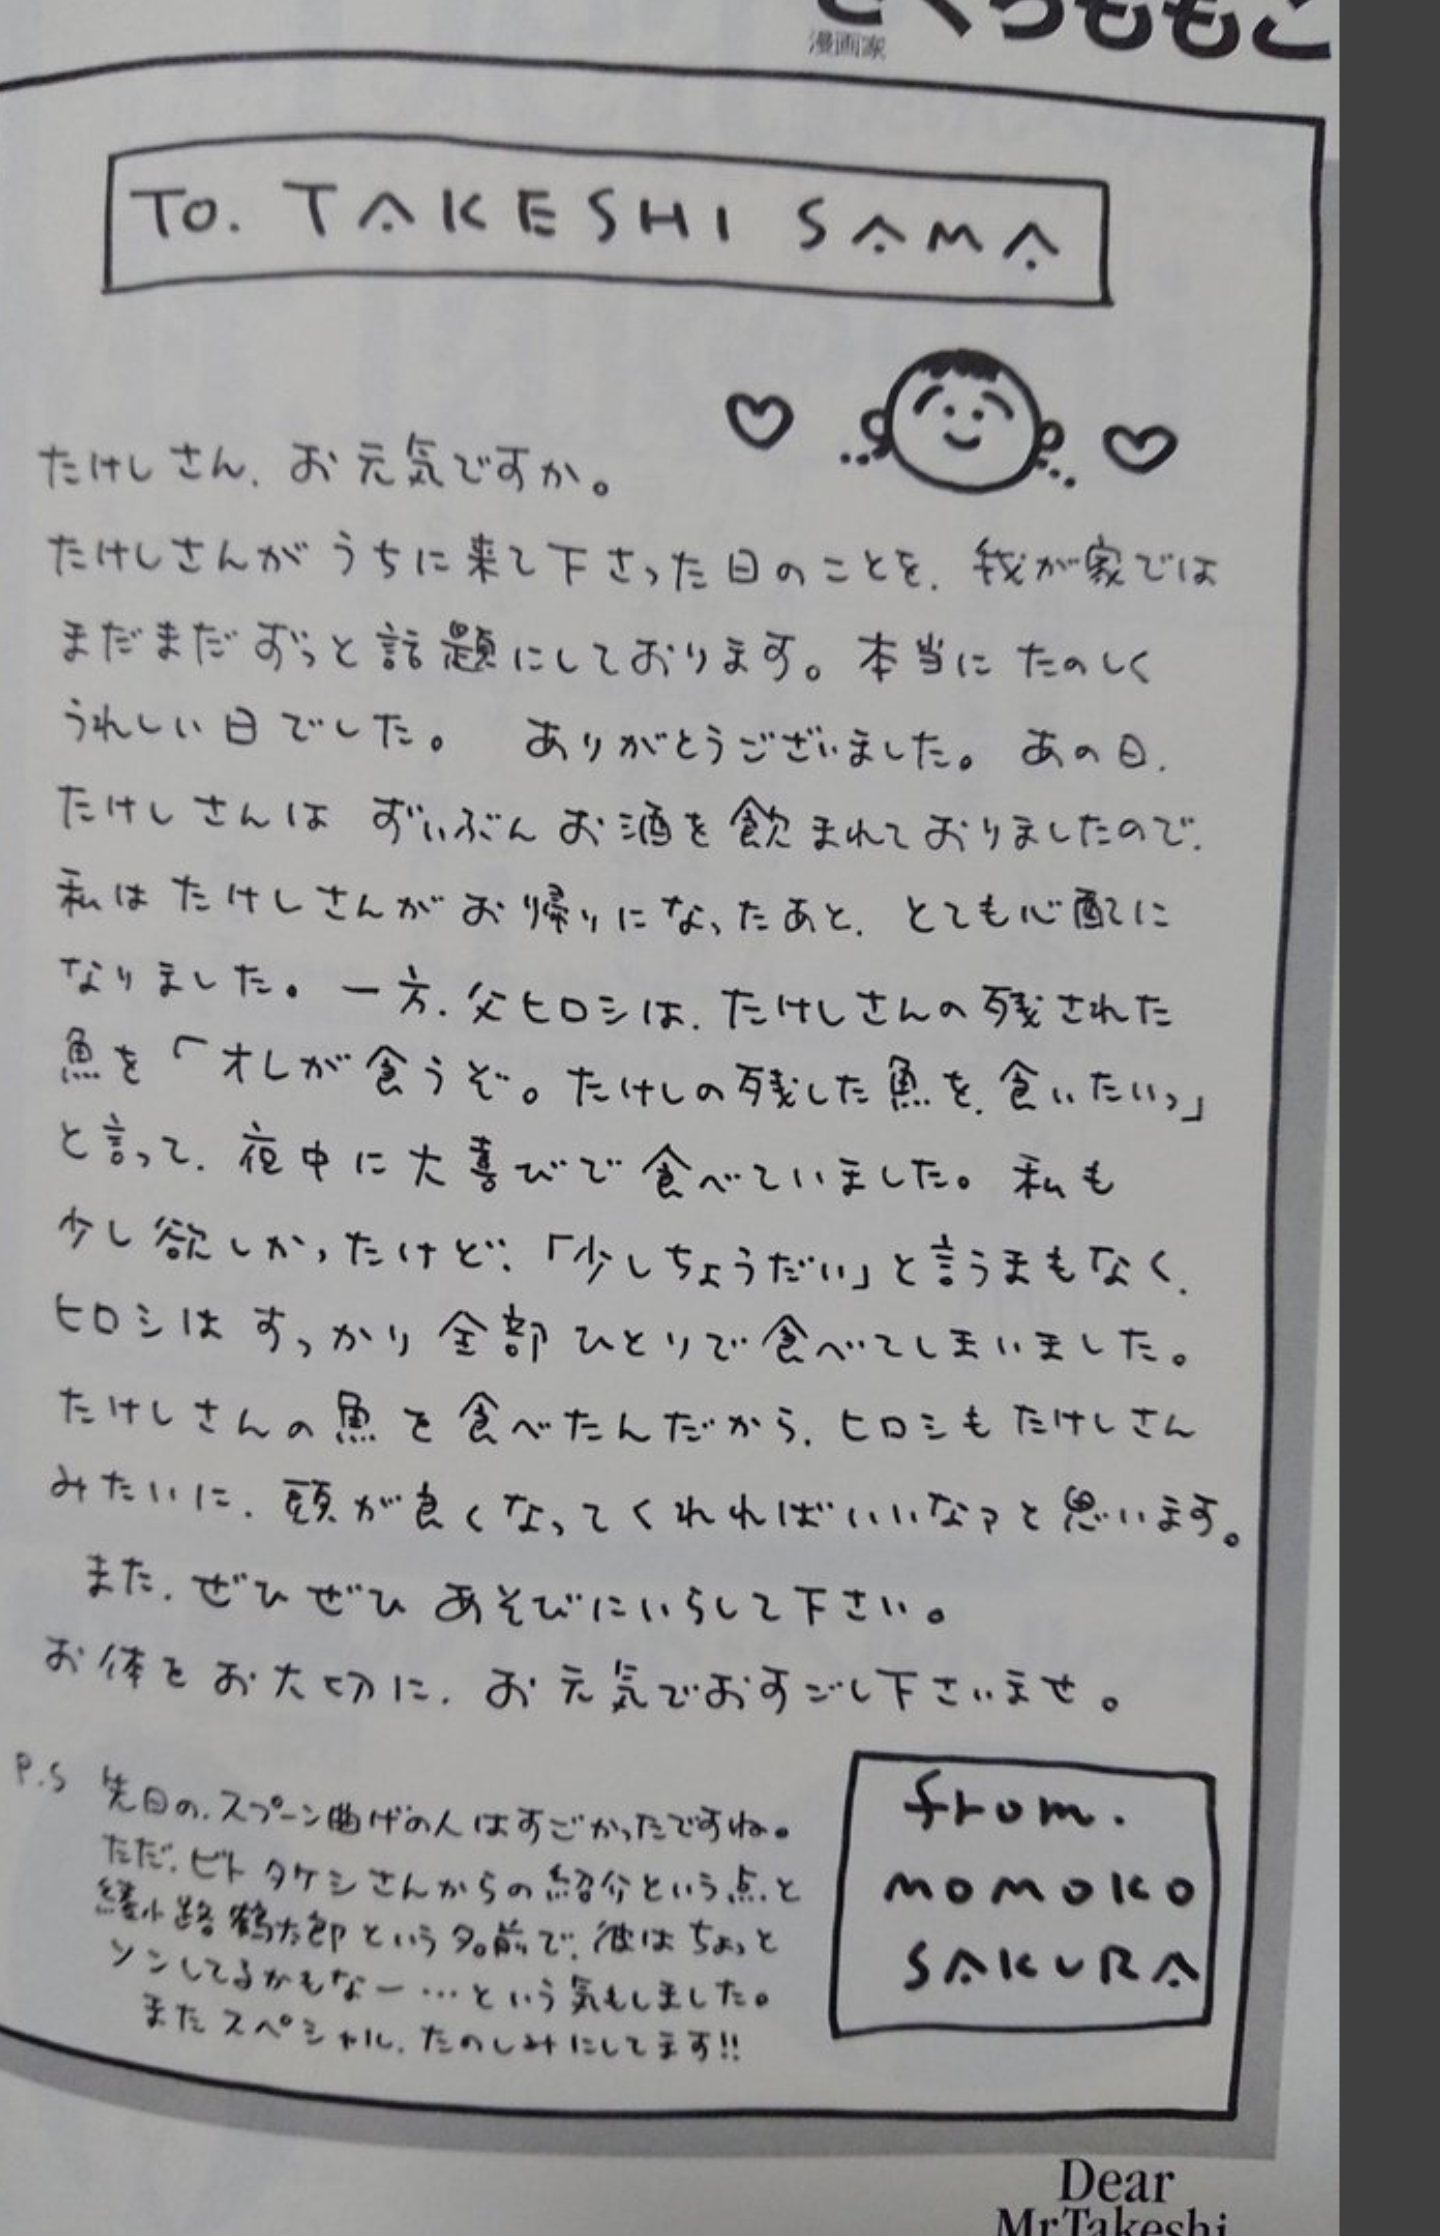 さくらももこ
漫画家
TO. TAKESHI SAMA
たけしさん、お元気ですか。
たけしさんがうちに来て下さった日のことを、我が家では
まだまだずっと話題にしております。本当にたのしく
うれしい日でした。 ありがとうございました。あの日、
たけしさんは ずいぶんお酒を飲まれておりましたので、
私はたけしさんがお帰りになったあと、とても心配に
なりました。一方、父ヒロシは、たけしさんの残された
魚を「オレが食うぞ。たけしの残した魚を、食いたいっ」
と言って、夜中に大喜びで食べていました。私も
少し欲しかったけど、「少しちょうだい」と言うまもなく、
ヒロシはすっかり全部ひとりで食べてしまいました。
たけしさんの魚を食べたんだから、ヒロシもたけしさん
みたいに、頭が良くなってくれればいいなァと思います。
また、ぜひぜひあそびにいらして下さい。
お体をお大切に、お元気でおすごし下さいませ。
P.S 先日の、スプーン曲げの人はすごかったですね。
ただ、ビトタケシさんからの紹介という点と
綾小路鶴太郎という名前で、彼はちょっと
ソンしてるかもなー…という気もしました。
またスペシャル、たのしみにしてます!!
from.
MOMOKO
SAKURA
Dear
Mr.Takeshi